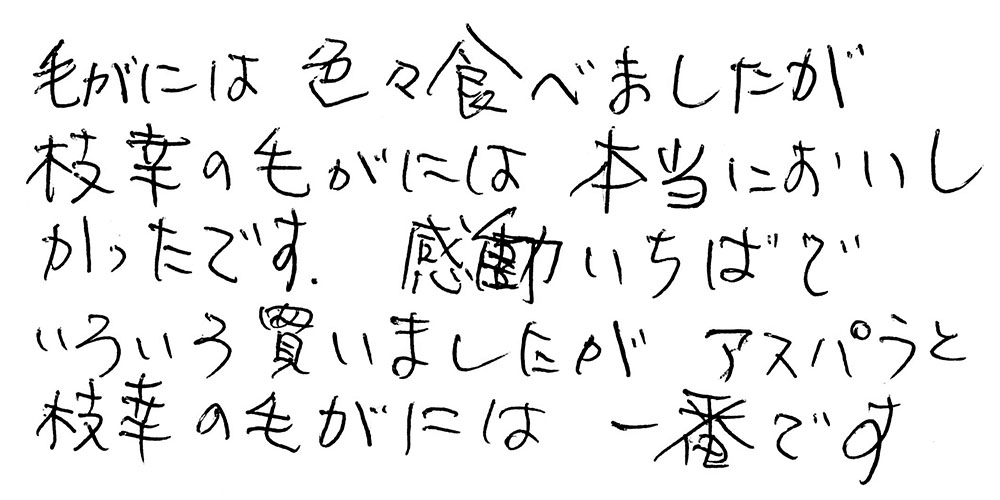 毛がには 色々食べましたが
枝幸の毛がには 本当においし
かったです. 感動いちばで
いろいろ買いましたが アスパラと
枝幸の毛がには 一番です